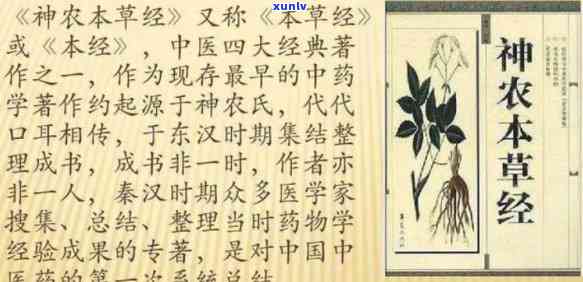 xunlv
《神农本草经》又称《本草经》
或《本经》，中医四大经典著
作之一，作为现存最早的中药
学著作约起源于神农氏，代代
口耳相传，于东汉时期集结整
理成书，成书非一时，作者亦
非一人，秦汉时期众多医学家
搜集、总结、整理当时药物学
经验成果的专著，是对中国中
医药的第一次系统总结
神农本草经